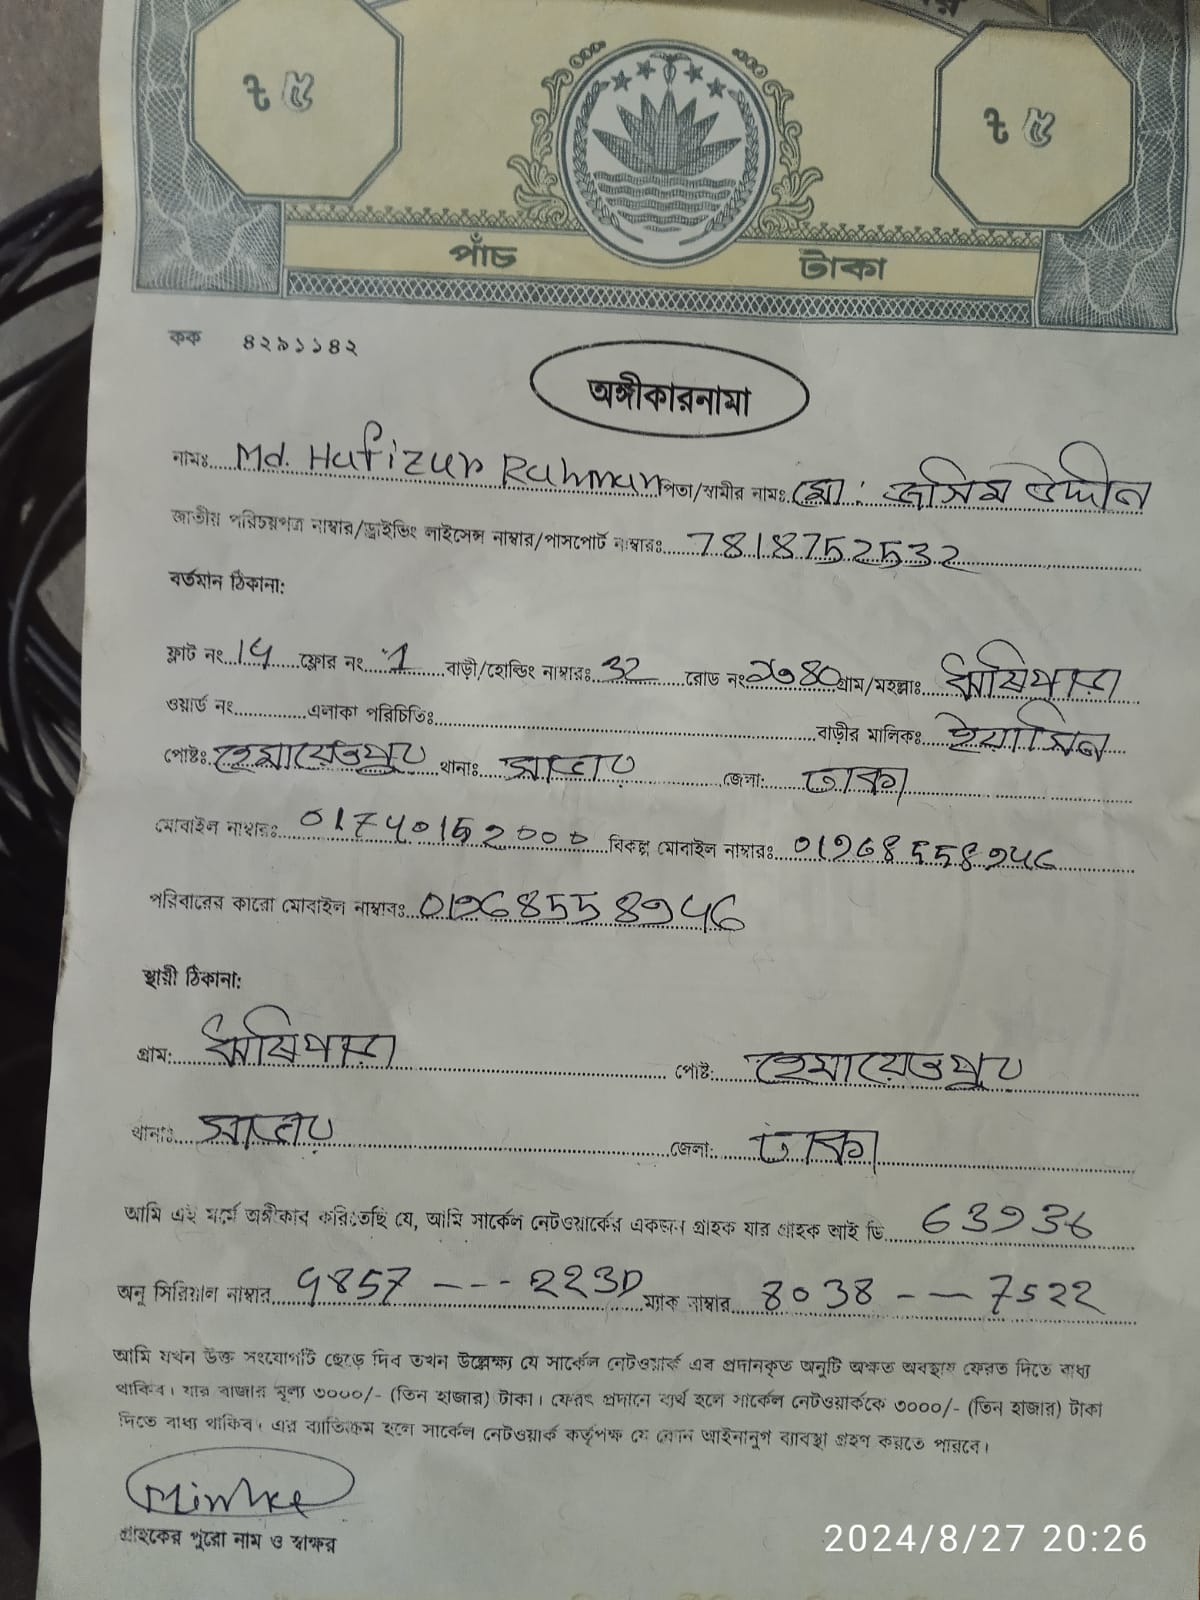 ৳ ৫
৳ ৫
পাঁচ টাকা
কক ৪২৯১১৪২
অঙ্গীকারনামা
নামঃ Md. Hafizur Rahman পিতা/স্বামীর নামঃ মো: জসিম উদ্দীন
জাতীয় পরিচয়পত্র নাম্বার/ড্রাইভিং লাইসেন্স নাম্বার/পাসপোর্ট নাম্বারঃ 7818752532
বর্তমান ঠিকানা:
ফ্লাট নং 14 ফ্লোর নং 1 বাড়ী/হোল্ডিং নাম্বারঃ 32 রোড নং গ্রাম/মহল্লাঃ ঋষিপাড়া
ওয়ার্ড নং এলাকা পরিচিতিঃ বাড়ীর মালিকঃ ইয়াসিন
পোষ্টঃ হেমায়েতপুর থানাঃ সাভার জেলা: ঢাকা
মোবাইল নাম্বারঃ বিকল্প মোবাইল নাম্বারঃ
পরিবারের কারো মোবাইল নাম্বারঃ
স্থায়ী ঠিকানা:
গ্রাম: ঋষিপাড়া পোষ্ট: হেমায়েতপুর
থানাঃ সাভার জেলা: ঢাকা
আমি এই মর্মে অঙ্গীকার করিতেছি যে, আমি সার্কেল নেটওয়ার্কের একজন গ্রাহক যার গ্রাহক আই ডি
অনু সিরিয়াল নাম্বার 9857 --- 223D ম্যাক নাম্বার 8038 -- 7522
আমি যখন উক্ত সংযোগটি ছেড়ে দিব তখন উল্লেক্ষ্য যে সার্কেল নেটওয়ার্ক এর প্রদানকৃত অনুটি অক্ষত অবস্থায় ফেরত দিতে বাধ্য
থাকিব। যার বাজার মূল্য ৩০০০/- (তিন হাজার) টাকা। ফেরৎ প্রদানে ব্যর্থ হলে সার্কেল নেটওয়ার্ককে ৩০০০/- (তিন হাজার) টাকা
দিতে বাধ্য থাকিব। এর ব্যাতিক্রম হলে সার্কেল নেটওয়ার্ক কর্তৃপক্ষ যে কোন আইনানুগ ব্যাবস্থা গ্রহণ করতে পারবে।
গ্রাহকের পুরো নাম ও স্বাক্ষর
2024/8/27 20:26